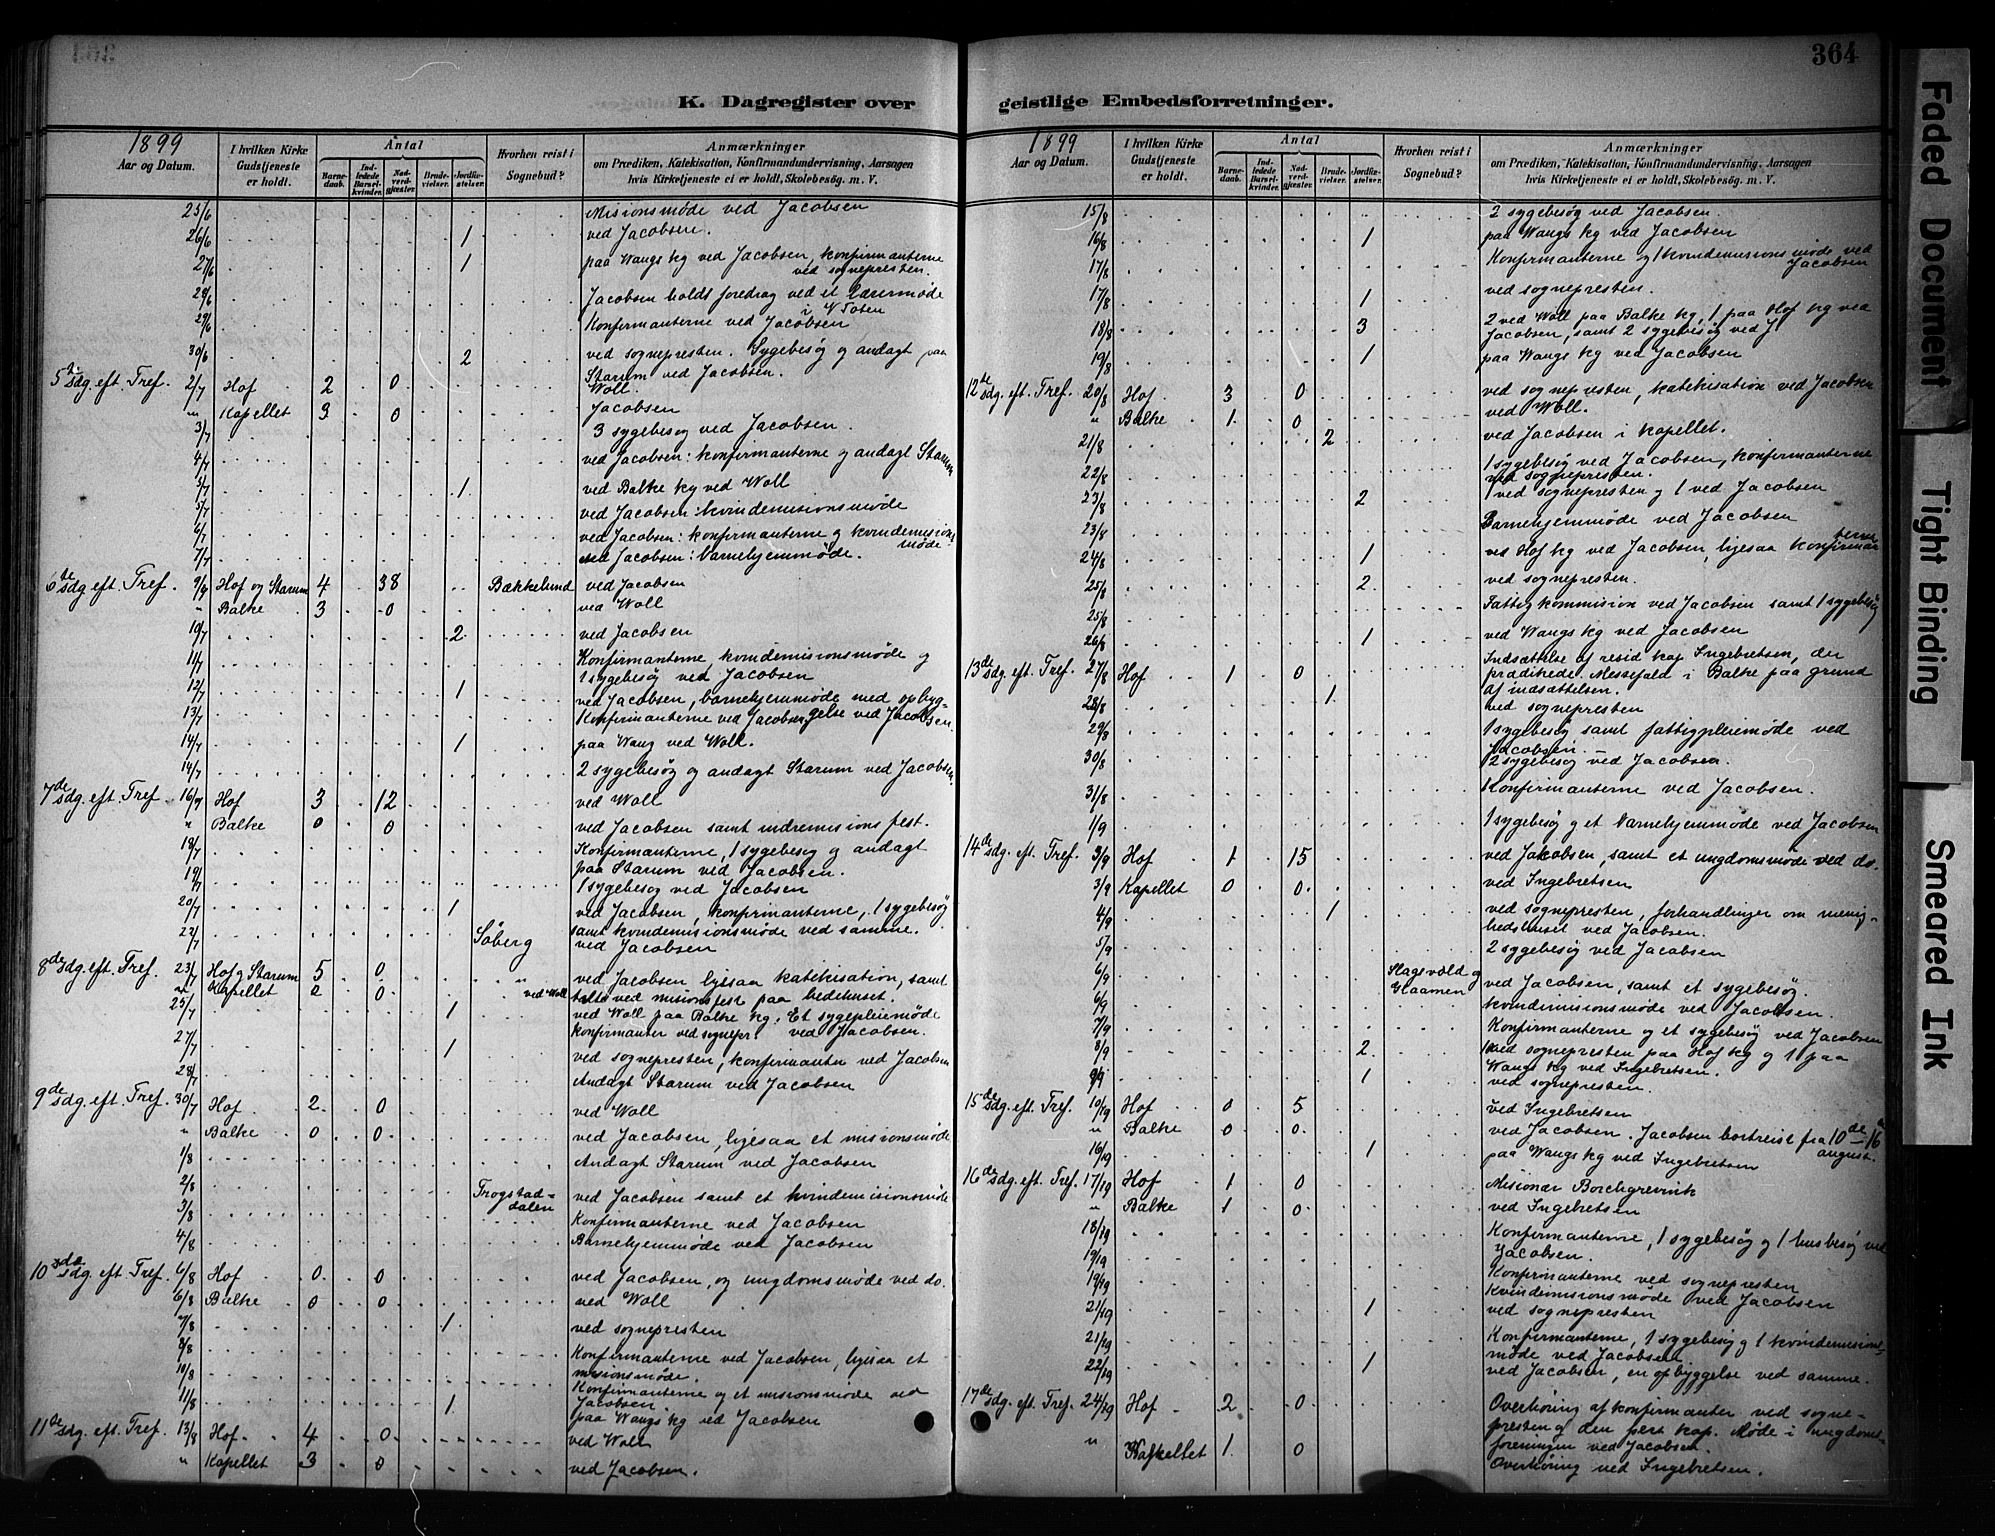 K. Dagregister over
1899
Aar og Datum.
I hvilken Kirke Gudstjeneste er holdt.
Antal
Barnedaab.
Indledede Barselkvinder.
Nadverdgjester.
Brudevielser.
Jordfæstelser.
Hvorhen reist i Sognebud?
Anmærkninger
om Prædiken, Katekisation, Konfirmandundervisning, Aarsagen
hvis Kirketjeneste ei er holdt, Skolebesøg. m. V.
25/6 Misionsmøde ved Jacobsen
26/6 1 ved Jacobsen.
27/6 1 paa Wangs kg ved Jacobsen, konfirmanterne
ved sognepresten.
29/6 Jacobsen holdt foredrag ved et lærermøde
i V Toten
29/6 Konfirmanterne ved Jacobsen
30/6 2 ved sognepresten. Sygebesøg og andagt paa
Starum ved Jacobsen.
5te sdg. eft. Tref. 2/7 Hof 2 0 Woll.
" Kapellet 3 0 Jacobsen
3/7 3 sygebesøg ved Jacobsen.
4/7 ved Jacobsen: konfirmanterne og andagt Starum
5/7 1 ved Balke kg ved Woll
5/7 ved Jacobsen: kvindemisionsmøde
6/7 ved Jacobsen: konfirmanterne og kvindemisions
møde
7/7 ved Jacobsen: barnehjemmøde.
6te sdg eft. Tref. 9/7 Hof og Starum 4 38 Bækkelund ved Jacobsen
" Balke 3 0 ved Woll
10/7 2 ved Jacobsen
11/7 Konfirmanterne, kvindemisionsmøde og
1 sygebesøg ved Jacobsen
12/7 1 ved Jacobsen, barnehjemmøde med opbyg-
gelse ved Jacobsen.
13/7 Konfirmanterne ved Jacobsen
14/7 1 paa Wang ved Woll.
14/7 2 sygebesøg og andagt Starum ved Jacobsen
7de sdg. eft. Tref. 16/7 Hof 3 12 ved Woll
" Balke 0 0 ved Jacobsen samt indremisions fest.
18/7 Konfirmanterne, 1 sygebesøg og andagt
paa Starum ved Jacobsen.
19/7 1 sygebesøg ved Jacobsen
20/7 1 ved Jacobsen, konfirmanterne, 1 sygebesøg
samt kvindemisionsmøde ved samme.
22/7 Søberg ved Jacobsen
8de sdg. eft. Tref. 23/7 Hof og Starum 5 0 " ved Jacobsen ligesaa katekisation, samt
Kapellet 2 0 ved Woll talte ved misionsfest paa bedehuset.
25/7 1 ved Woll paa Balke kg. Et sygepleiemøde
konfirmanter ved sognepr. ved Jacobsen.
27/7 1 ved sognepresten, konfirmanter ved Jacobsen
28/7 Andagt Starum ved Jacobsen
9de sdg. eft. Tref. 30/7 Hof 2 0 ved Woll
" Balke 0 0 ved Jacobsen, ligesaa et misionsmøde
1/8 Andagt Starum ved Jacobsen
2/8 Trogstad-
dalen ved Jacobsen samt et kvindemisionsmøde
3/8 Konfirmanterne ved Jacobsen
4/8 Barnehjemmøde ved Jacobsen
10de sdg. eft. Tref. 6/8 Hof 0 0 ved Jacobsen, og ungdomsmøde ved do.
6/8 Balke 0 0 ved Woll
7/8 1 ved sognepresten
8/8 Konfirmanterne ved Jacobsen, ligesaa et
10/8 misionsmøde.
Konfirmanterne og et misionsmøde ved
11/8 1 Jacobsen
paa Wangs kg ved Jacobsen
11te sdg. eft. Tref. 13/8 Hof 4 0 ved Woll
" Kapellet 3 0 ved Jacobsen.
364
geistlige Embedsforretninger.
1899
Aar og Datum.
I hvilken Kirke Gudstjeneste er holdt.
Antal
Barnedaab.
Indledede Barselkvinder.
Nadverdgjester.
Brudevielser.
Jordfæstelser.
Hvorhen reist i Sognebud?
Anmærkninger
om Prædiken, Katekisation, Konfirmandundervisning, Aarsagen
hvis Kirketjeneste ei er holdt, Skolebesøg. m. V.
15/8 2 sygebesøg ved Jacobsen.
16/8 1 paa Wangs kg ved Jacobsen
17/8 Konfirmanterne og 1 kvindemisionsmøde ved
Jacobsen
17/8 1 ved sognepresten.
18/8 3 2 ved Woll paa Balke kg, 1 paa Hof kg ved
Jacobsen, samt 2 sygebesøg ved J
19/8 1 paa Wangs kg ved Jacobsen
12te sdg. eft. Tref. 20/8 Hof 3 0 ved sognepresten, katekisation ved Jacobsen
" Balke 1 0 ved Woll.
21/8 2 ved Jacobsen i kapellet.
22/8 1 sygebesøg ved Jacobsen, konfirmanterne
ved sognepresten.
23/8 2 1 ved sognepresten og 1 ved Jacobsen
23/8 Barnehjemmøde ved Jacobsen
24/8 1 ved Hof kg ved Jacobsen, ligesaa konfirman
terne
25/8 2 ved sognepresten.
25/8 Fattigkommision ved Jacobsen samt 1 sygebesøg
26/8 1 ved Wangs kg ved Jacobsen
13de sdg. eft. Tref. 27/8 Hof 1 0 Indsættelse af resid kap Ingebretsen, der
prædikede. Messefald i Balke paa grund
af indsættelsen.
28/8 1 ved sognepresten
29/8 1 sygebesøg samt fattigpleiemøde ved
Jacobsen.
30/8 2 sygebesøg ved Jacobsen.
31/8 Konfirmanterne ved Jacobsen.
1/9 1 sygebesøg og et barnehjemmøde ved Jacobsen
14de sdg. eft. Tref. 3/9 Hof 1 15 ved Jakobsen, samt et ungdomsmøde ved do.
3/9 Kapellet 0 0 ved Ingebretsen
4/9 1 ved sognepresten, forhandlinger om menig-
hedshuset ved Jacobsen.
5/9 2 sygebesøg ved Jacobsen
6/9 Slagsvold og
Glaamen ved Jacobsen, samt et sygebesøg.
6/9 kvindemisionsmøde ved Jacobsen.
7/9 Konfirmanterne og et sygebesøg ved Jacobsen
8/9 2 1 ved sognepresten paa Hof kg og 1 paa
Wangs kg ved Ingebretsen.
9/9 1 ved sognepresten.
15de sdg. eft. Tref. 10/9 Hof 0 5 ved Ingebretsen
" Balke 0 0 ved Jacobsen. Jacobsen bortreist fra 10de-16
august.
16/9 1 paa Wangs kg ved Ingebretsen
16de sdg. eft. Tref. 17/9 Hof 1 0 Misionær Borchgrevink
" Balke 1 0 ved Ingebretsen
18/9 Konfirmanterne, 1 sygebesøg og 1 husbesøg ved
19/9 Jacobsen.
19/9 Konfirmanterne ved sognepresten
Kvindemisionsmøde ved Jacobsen
21/9 1 ved sognepresten
21/9 Konfirmanterne, 1 sygebesøg og 1 kvindemisions-
møde ved Jacobsen
22/9 1 ved Jacobsen, en opbyggelse ved samme.
17de sdg. eft. Tref. 24/9 Hof 2 0 Overhøring af konfirmanter ved sogne-
presten og den pers kap. Møde i ungdoms-
foreningen ved Jacobsen.
" Kapellet 1 0 Overhøring ved Ingebretsen.
Faded Document
Tight Binding
Smeared Ink